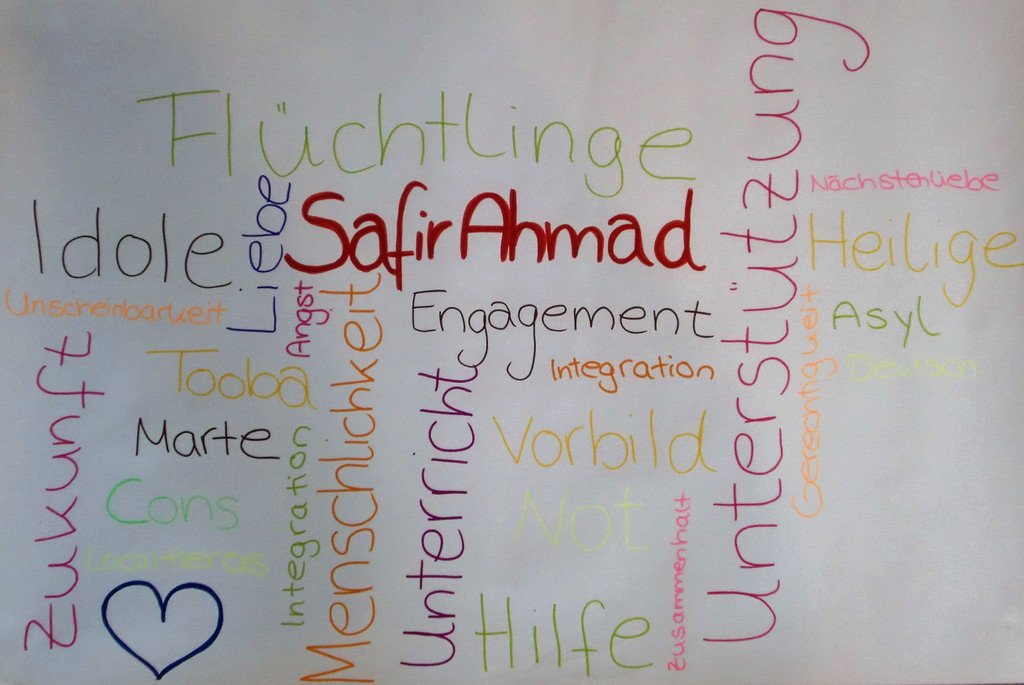 Flüchtlinge
Unterstützung
Nächstenliebe
Safir Ahmad
Liebe
Idole
Heilige
Unscheinbarkeit
Angst
Menschlichkeit
Engagement
Asyl
Gerechtigkeit
Zukunft
Tooba
Integration
Deutsch
Unterricht
Marte
Vorbild
Integration
Cons
Not
Zusammenhalt
Localheroes
Hilfe